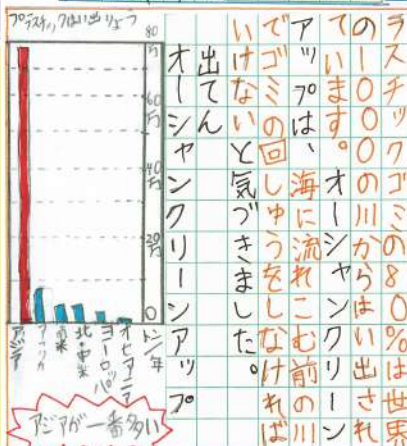 ラスチックゴミの80%は世界
の一〇〇〇の川からはい出され
ています。オーシャンクリーン
アップは、海に流れこむ前の川
でゴミの回しゅうをしなければ
いけないと気づきました。
出てん
オーシャンクリーンアップ
プラスチックはい出りょう
80万
60万
40万
20万
0
トン/年
オセアニア
ヨーロッパ
北・中米
南米
アフリカ
アジア
アジアが一番多い